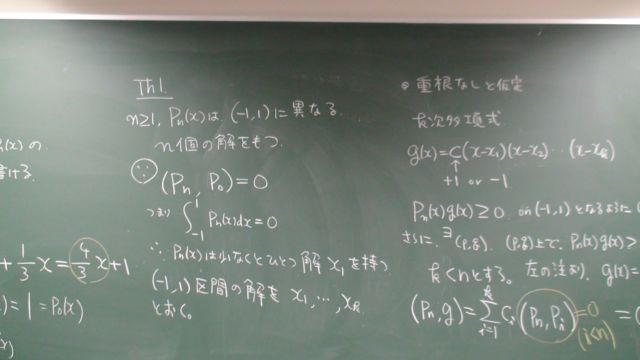 (x) の
書ける.
+ 1/3 x = 4/3 x + 1
) = 1 = P₀(x)
Th1.
n≥1, Pₙ(x)は, (-1,1)に異なる
n個の解をもつ.
(Pₙ, P₀) = 0
つまり ∫₋₁¹ Pₙ(x)dx = 0
∴ Pₙ(x)は少なくとひとつ解 x₁を持つ
(-1,1)区間の解を x₁, …, x_k
とおく。
重根なしと仮定
k次多項式
g(x) = C(x-x₁)(x-x₂)…(x-x_k)
↑
+1 or -1
Pₙ(x)g(x) ≥ 0. on (-1,1) となるように
さらに. ∃(p,q). (p,q)上で, Pₙ(x)g(x) >
k<nとする. 左の注より, g(x) =
(Pₙ, g) = Σ_{i=1}^{k} Cᵢ (Pₙ, Pᵢ) = 0 =
(i<n)